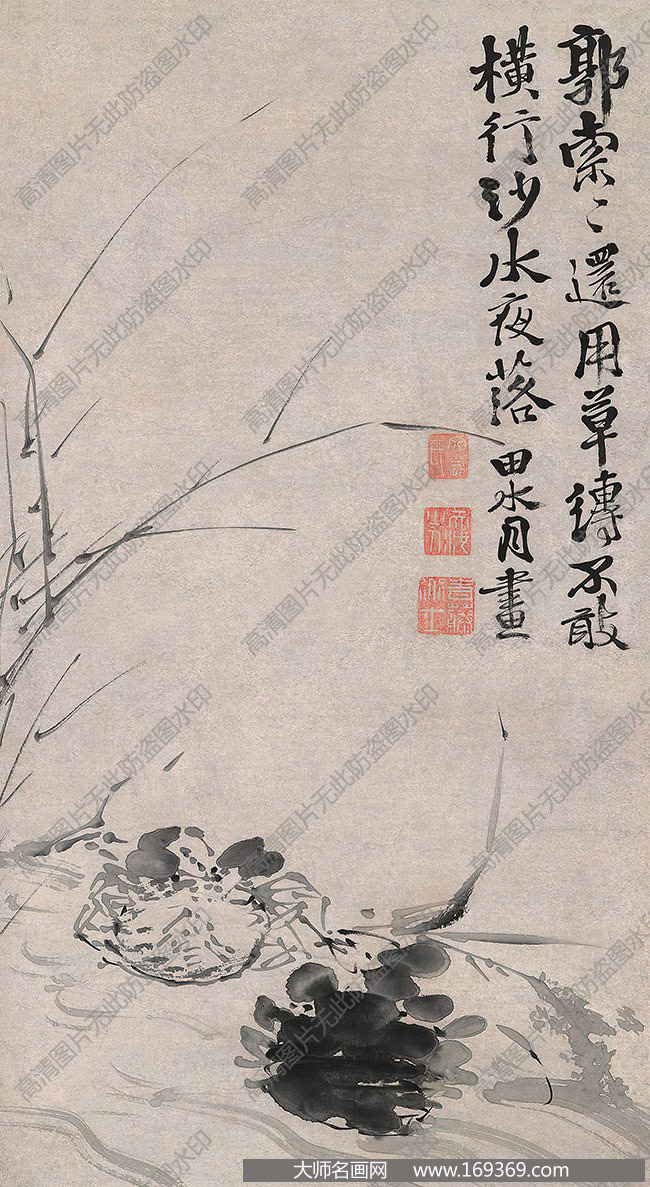 郭索〻還用草縛不敢
橫行沙水夜落 田水月畫
高清图片无此防盗图水印
大师名画网 www.169369.com